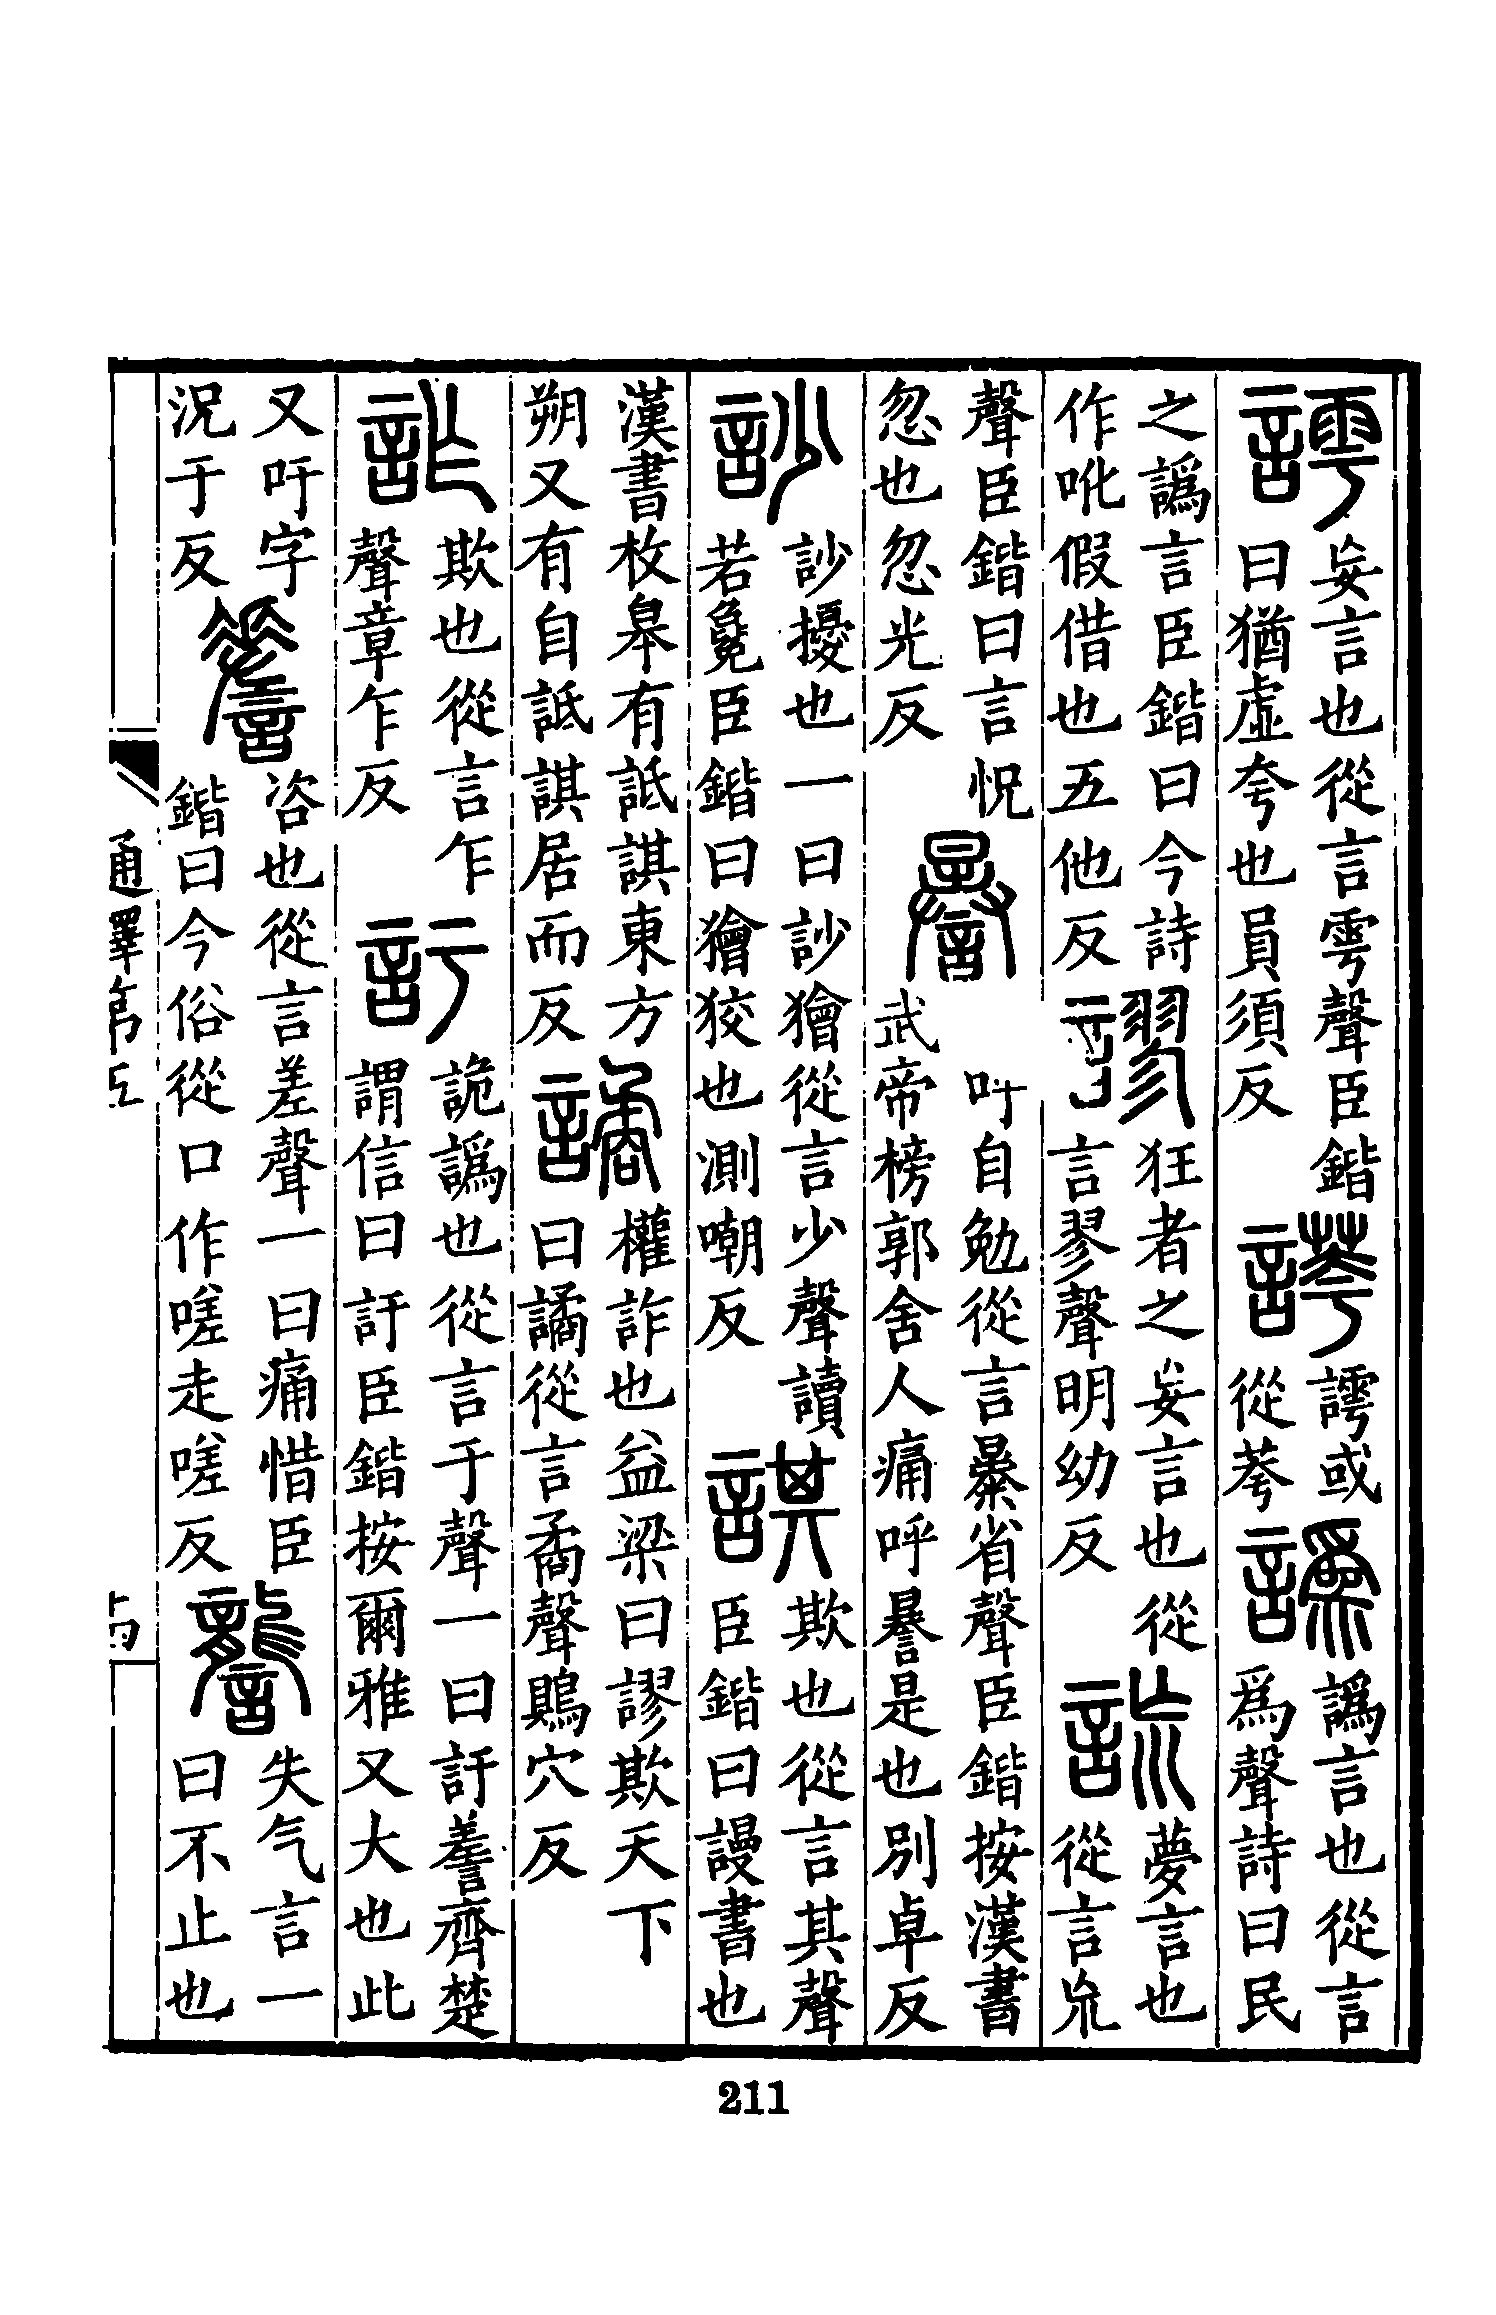 謣
妄言也從言雩聲臣鍇
曰猶虛夸也員須反
𧬁
謣或
從荂
譌
譌言也從言
爲聲詩曰民
之譌言臣鍇曰今詩
作吪假借也五他反
謬
狂者之妄言也從
言翏聲明幼反
詤
夢言也
從言巟
聲臣鍇曰言怳
忽也忽光反
謈
自勉從言㬥省聲臣鍇按漢書
武帝榜郭舍人痛呼謈是也別卓反
訬
訬擾也一曰訬獪從言少聲讀
若毚臣鍇曰獪狡也測嘲反
諆
欺也從言其聲
臣鍇曰謾書也
漢書枚皋有詆諆東方
朔又有自詆諆居而反
譎
權詐也益梁曰謬欺天下
曰譎從言矞聲鵙穴反
詐
欺也從言乍
聲章乍反
訏
詭譌也從言于聲一曰訏𧪘齊楚
謂信曰訏臣鍇按爾雅又大也此
又吁字
況于反
𧪘
咨也從言差聲一曰痛惜臣
鍇曰今俗從口作嗟走嗟反
讋
失气言一
曰不止也
通釋第五
211